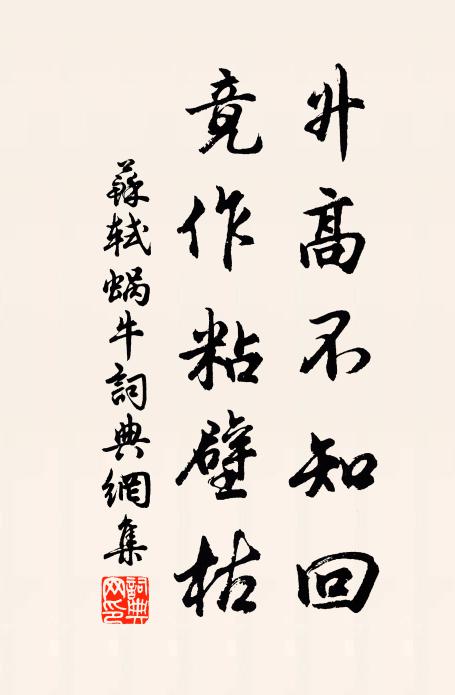 升高不知回
竟作粘壁枯
蘇軾蝸牛詞典網集
詞典
网印